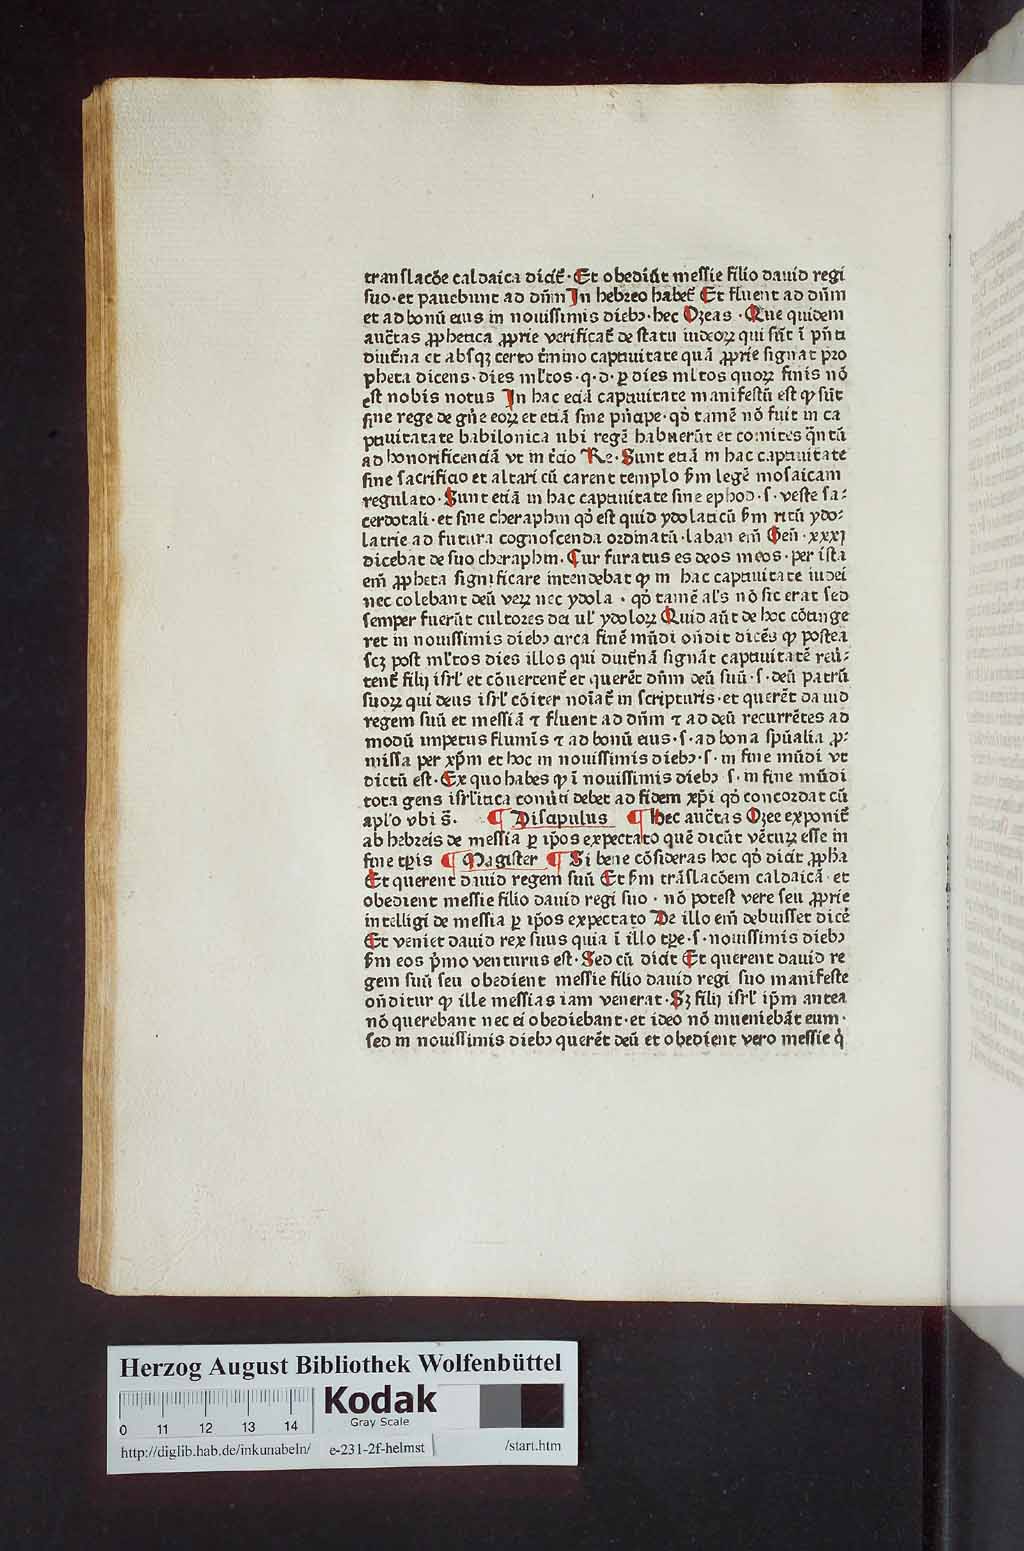 tranſlacōe caldaica dicit᷑· Et obediūt meſſie filio dauid regi
ſuo· et pauebunt ad dn̄m In hebreo habet᷑ Et fluent ad dn̄m
et ad bonū eius in nouiſſimis dieb⁊· hec Ozeas · Que quidem
auctͣs ꝓphetica ꝓprie verificat᷑ de ſtatu iudeoꝝ qui ſūt ī pn̄ti
diut᷑na et abſqꝫ certo t᷑mino captiuitate quā ꝓprie ſignat pro
pheta dicens· dies ml̓tos· q· d· ꝑ dies ml̓tos quoꝝ finis nō
eſt nobis notus In hac eciā captiuitate manifeſtū eſt ꝙ ſūt
ſine rege de gn̄e eoꝝ et etiā ſine pn̄cipe· qd̓ tamē nō fuit in ca
ptiuitatate babilonica ubi regē habuerūt et comites q̄ntū
ad honorificenciā vt in t᷑cio Re· Sunt etiā in hac captiuitate
ſine ſacrificio et altari cū carent templo ẜm legē moſaicam
regulato· Sunt etiā in hac captiuitate ſine ephod· ſ· veſte ſa⸗
cerdotali· et ſine theraphin qd̓ eſt quid ydolaticū ẜm ritū ydo⸗
latrie ad futura cognoſcenda ordinatū· laban em̄ Gen̄· xxxj
dicebat de ſuo theraphin· Cur furatus es deos meos· per iſta
em̄ ꝓpheta ſignificare intendebat ꝙ in hac captiuitate iudei
nec colebant deū verꝝ nec ydola · qd̓ tamē al̓s nō ſic erat ſed
ſemper fuerūt cultores dei ul̓ ydoloꝝ Quid aūt de hoc cōtinge
ret in nouiſſimis dieb⁊ circa finē mūdi on̄dit dicēs ꝙ poſtea
ſcꝫ poſt ml̓tos dies illos qui diut᷑nā ſignāt captiuitatē reu᷑⸗
tent᷑ filij iſrl̓ et cōuertent᷑ et querēt dn̄m deū ſuū· ſ· deū patrū
ſuoꝝ qui deus iſrl̓ cōiter noīat᷑ in ſcripturis· et querēt dauid
regem ſuū et meſſiā ⁊ fluent ad dn̄m ⁊ ad deū recurrētes ad
modū impetus fluminis ⁊ ad bonū eius· ſ· ad bona ſpūalia ꝓ⸗
miſſa per xp̄m et hoc in nouiſſimis dieb⁊· ſ· in fine mūdi vt
dictū eſt· Ex quo habes ꝙ ī nouiſſimis dieb⁊ ſ· in fine mūdi
tota gens iſrl̓itica conu᷑ti debet ad fidem xp̄i qd̓ concordat cū
apl̓o vbi s̄. ¶ Diſcipulus ¶ Hec auctͣs Ozee exponit᷑
ab hebreis de meſſia ꝑ ip̄os expectato quē dicūt vētuꝝ eſſe in
fine tꝑis ¶ Magiſter ¶ Si bene cōſideras hoc qd̓ dicit ꝓph̄a
Et querent dauid regem ſuū Et ẜm trāſlacōem caldaicā· et
obedient meſſie filio dauid regi ſuo · nō poteſt vere ſeu ꝓprie
intelligi de meſſia ꝑ ip̄os expectato De illo em̄ debuiſſet dice᷑
Et veniet dauid rex ſuus quia ī illo tꝑe· ſ· nouiſſimis dieb⁊
ẜm eos p̓mo venturus eſt· Sed cū dicit Et querent dauid re
gem ſuū ſeu obedient meſſie filio dauid regi ſuo manifeſte
on̄ditur ꝙ ille meſſias iam venerat· Sꝫ filij iſrl̓ ip̄m antea
nō querebant nec ei obediebant· et ideo nō inueniebāt eum·
ſed in nouiſſimis dieb⁊ querēt deū et obedient vero meſſie q̓
Herzog August Bibliothek Wolfenbüttel
Kodak
Gray Scale
0 11 12 13 14
http://diglib.hab.de/inkunabeln/ e-231-2f-helmst /start.htm